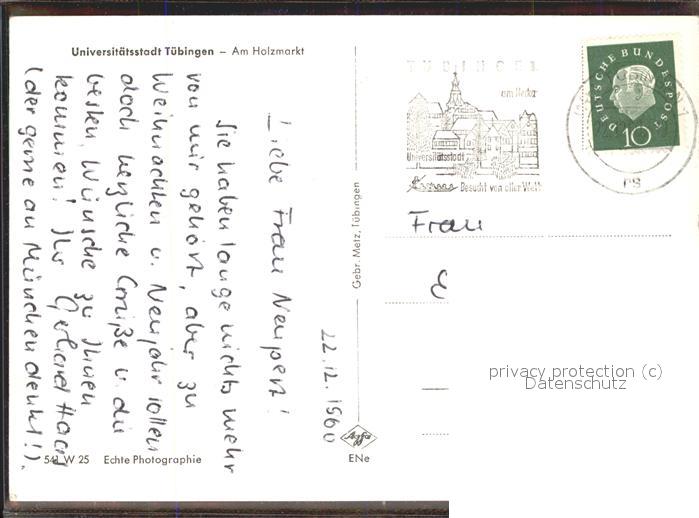 Universitätsstadt Tübingen – Am Holzmarkt
22.12.1960
Liebe Frau Neupert!
Sie haben lange nichts mehr
von mir gehört, aber zu
Weihnachten u. Neujahr sollen
doch herzliche Grüße u. die
besten Wünsche zu Ihnen
kommen! Ihr Gerhard Haag
(der gerne an München denkt!).
541 W 25 Echte Photographie
Gebr. Metz, Tübingen
Agfa
ENe
TÜBINGEN
am Neckar
Universitätsstadt
Besucht von aller Welt
DEUTSCHE BUNDESPOST
10
Frau
privacy protection (c)
Datenschutz